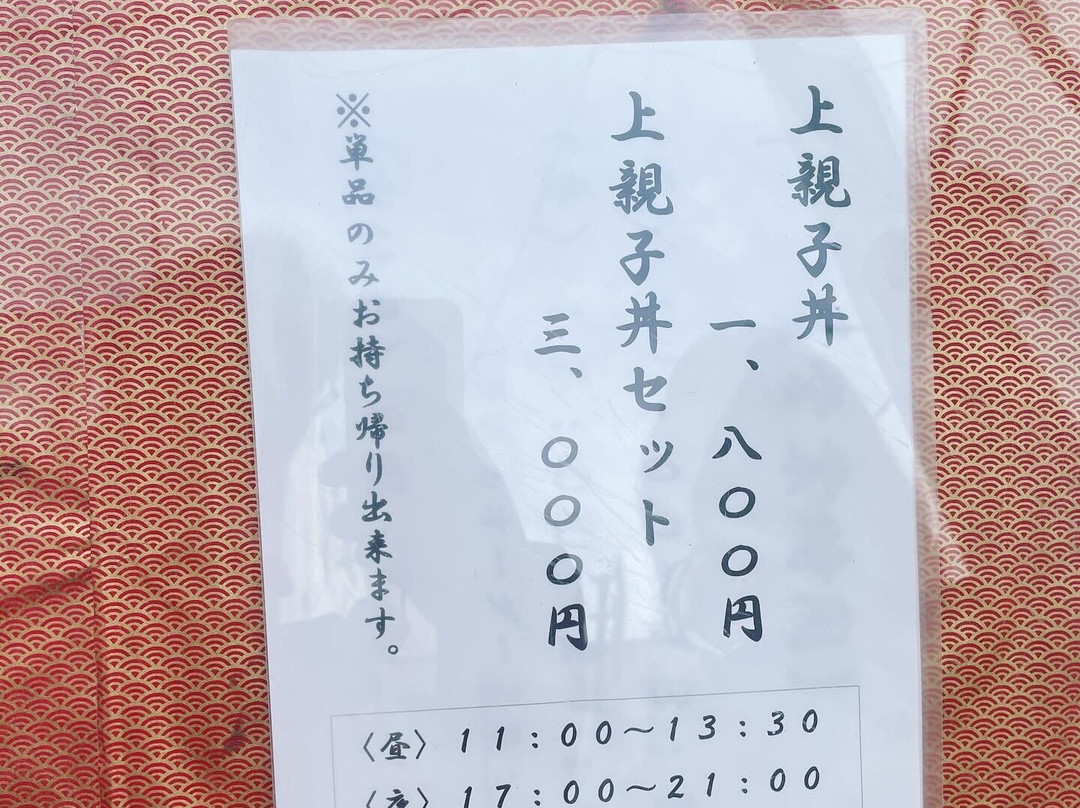 上親子丼
一、八〇〇円
上親子丼セット
三、〇〇〇円
※単品のみお持ち帰り出来ます。
〈昼〉11:00〜13:30
〈夜〉17:00〜21:00